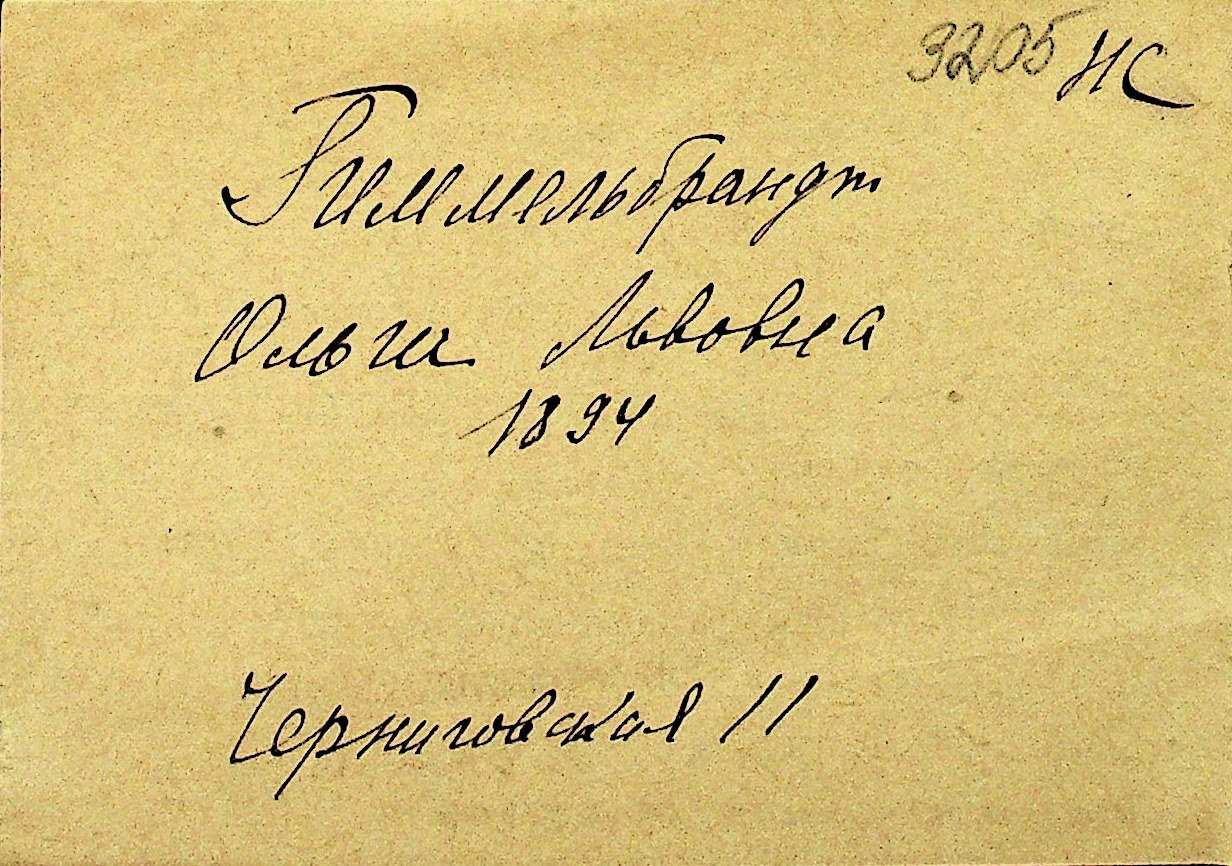 3205 НС
Гиммельбрандт
Ольга Львовна
1894
Черниговская 11